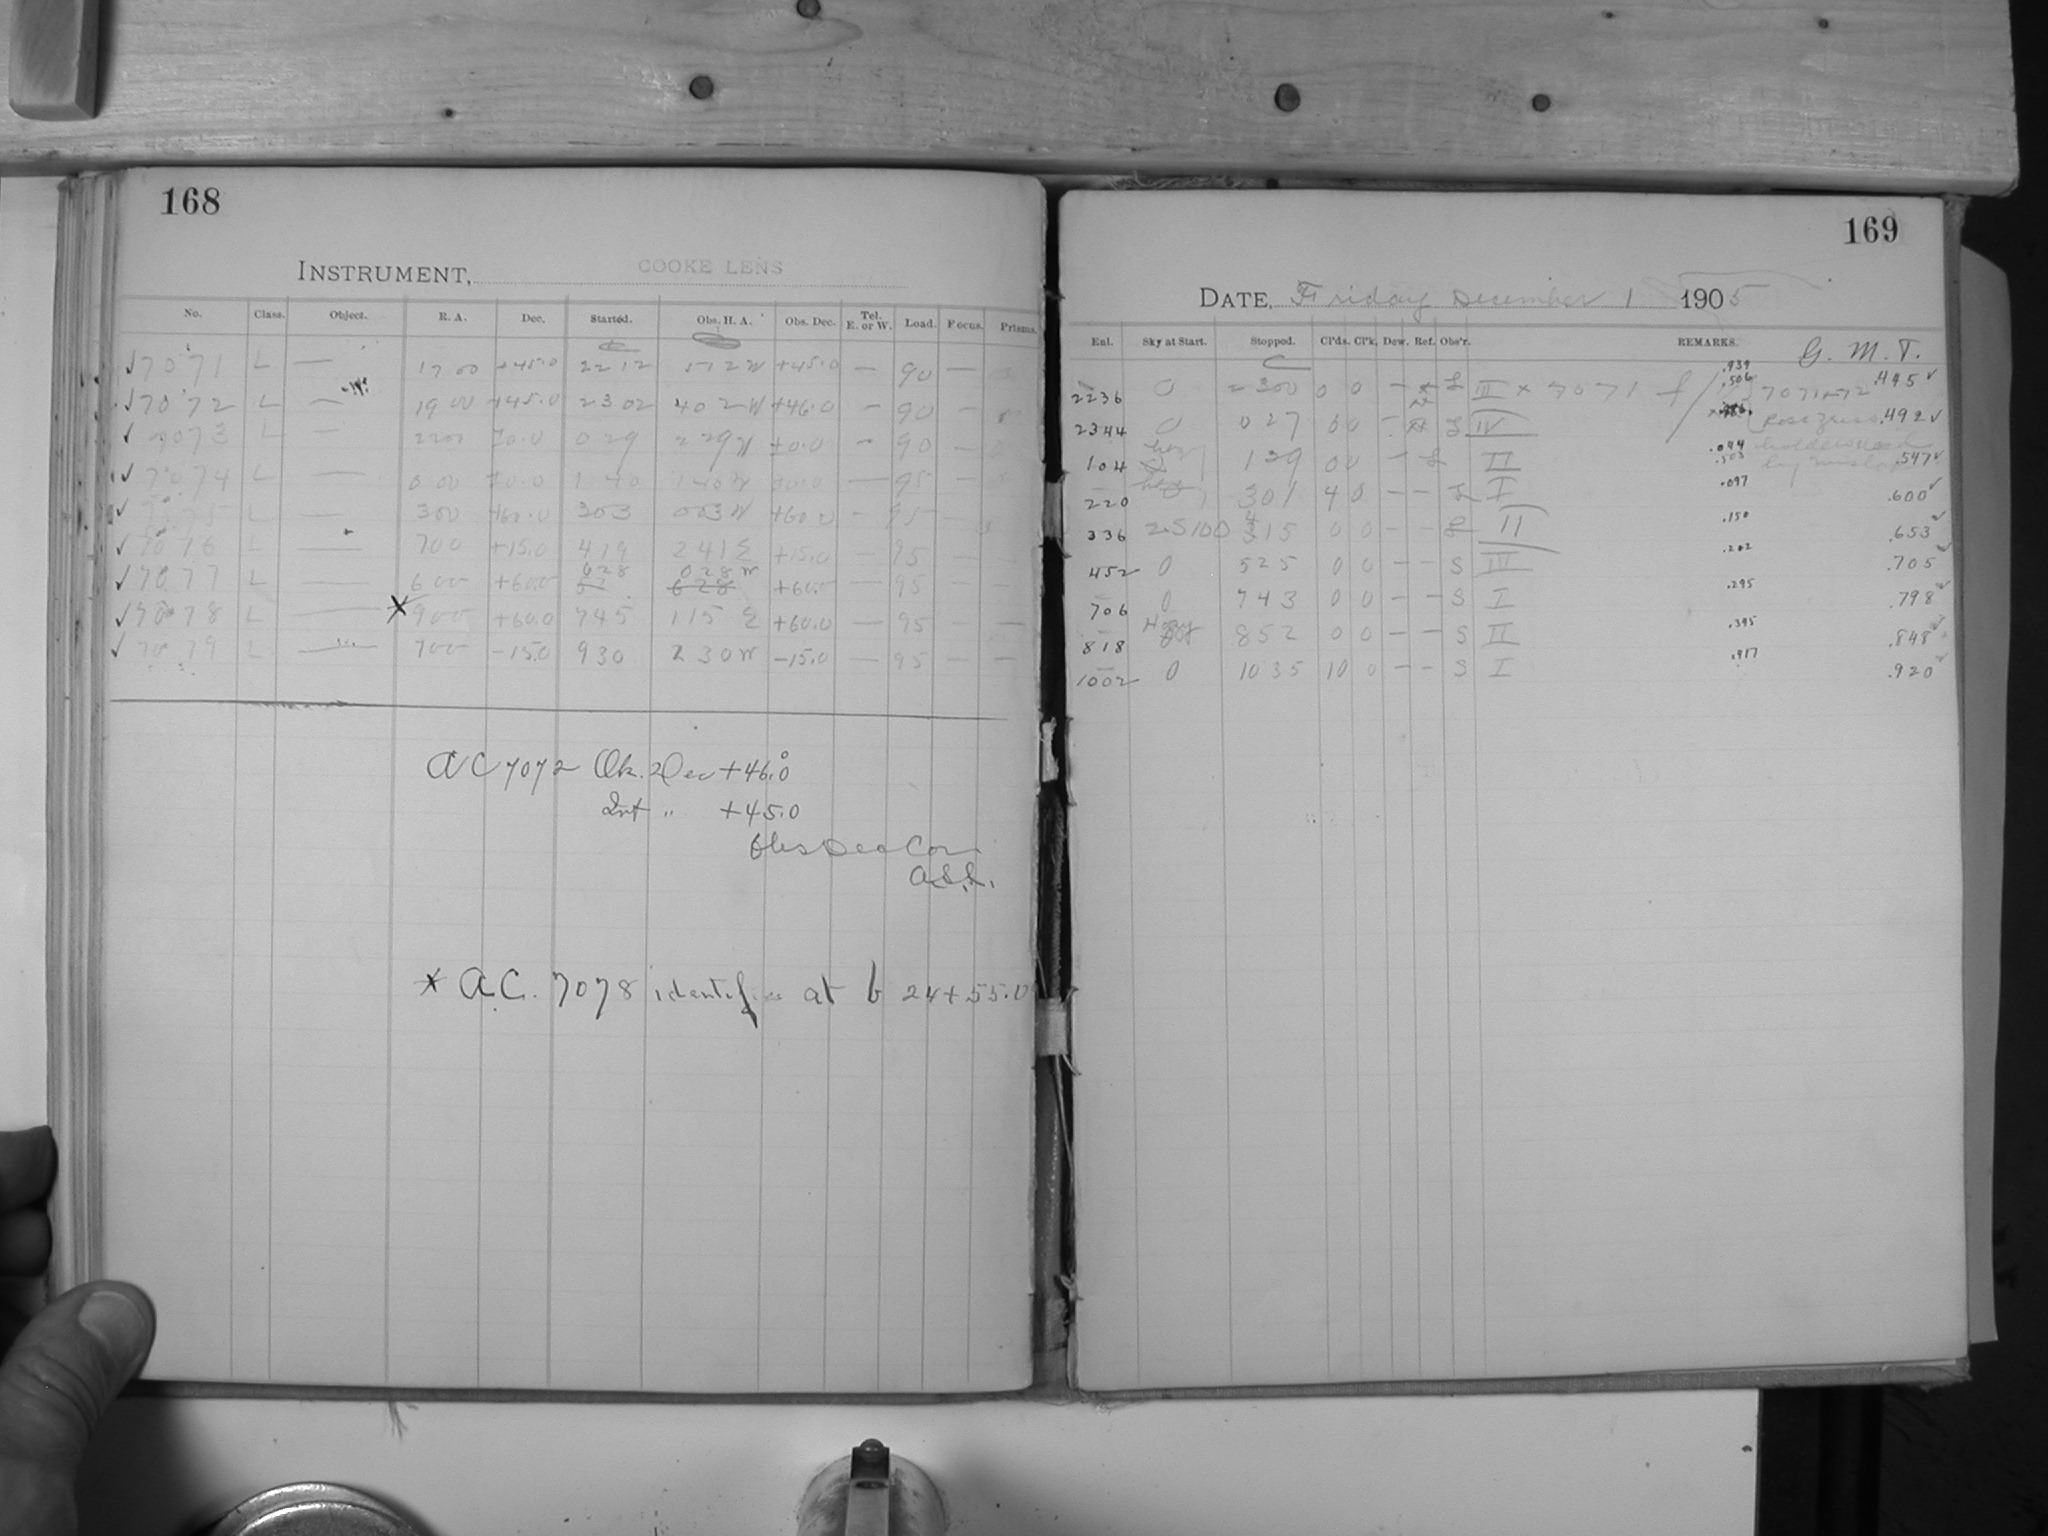 168
INSTRUMENT, COOKE LENS
No. Class. Object. R. A. Dec. Started. Obs. H. A. Obs. Dec. Tel. E. or W. Load. Focus. Prisms.
✓7071 L — 1700 +45.0 2212 512W +45.0 — 90 —
✓7072 L — 1900 +45.0 2302 402W +46.0 — 90 —
✓7073 L — 2200 +0.0 029 229W +0.0 — 90 —
✓7074 L — 000 +0.0 140 140W +0.0 — 95 —
✓7075 L — 300 +60.0 303 003W +60.0 — 95 —
✓7076 L — 700 +15.0 419 241E +15.0 — 95 —
✓7077 L — 600 +60.0 628 028W +60.0 — 95 —
✓7078 L — * 900 +60.0 745 115 E +60.0 — 95 —
✓7079 L — 700 -15.0 930 230W -15.0 — 95 — —
AC 7072 Ob. Dec +46.0
Int " +45.0
Obs Dec Cor
A.S.L.
* A.C. 7078 identifies at 6 24 + 55.0
169
DATE, Friday December 1 1905
Enl. Sky at Start. Stopped. Cl'ds. Cl'k. Dew. Ref. Obs'r. REMARKS. G. M. T.
2236 0 2300 0 0 — L III × 7071 .939 .506 7071+72 .445✓
2344 0 027 0 0 — L IV .492✓
104 hazy 139 0 0 — L II .044 .503 by .547✓
220 hazy 301 4 0 — — L I .097 .600✓
336 2S100 415 0 0 — — L II .150 .653✓
452 0 525 0 0 — — S III .202 .705
706 0 743 0 0 — — S I .295 .798
818 Hazy 852 0 0 — — S II .345 .848
1002 0 1035 10 0 — — S I .417 .920